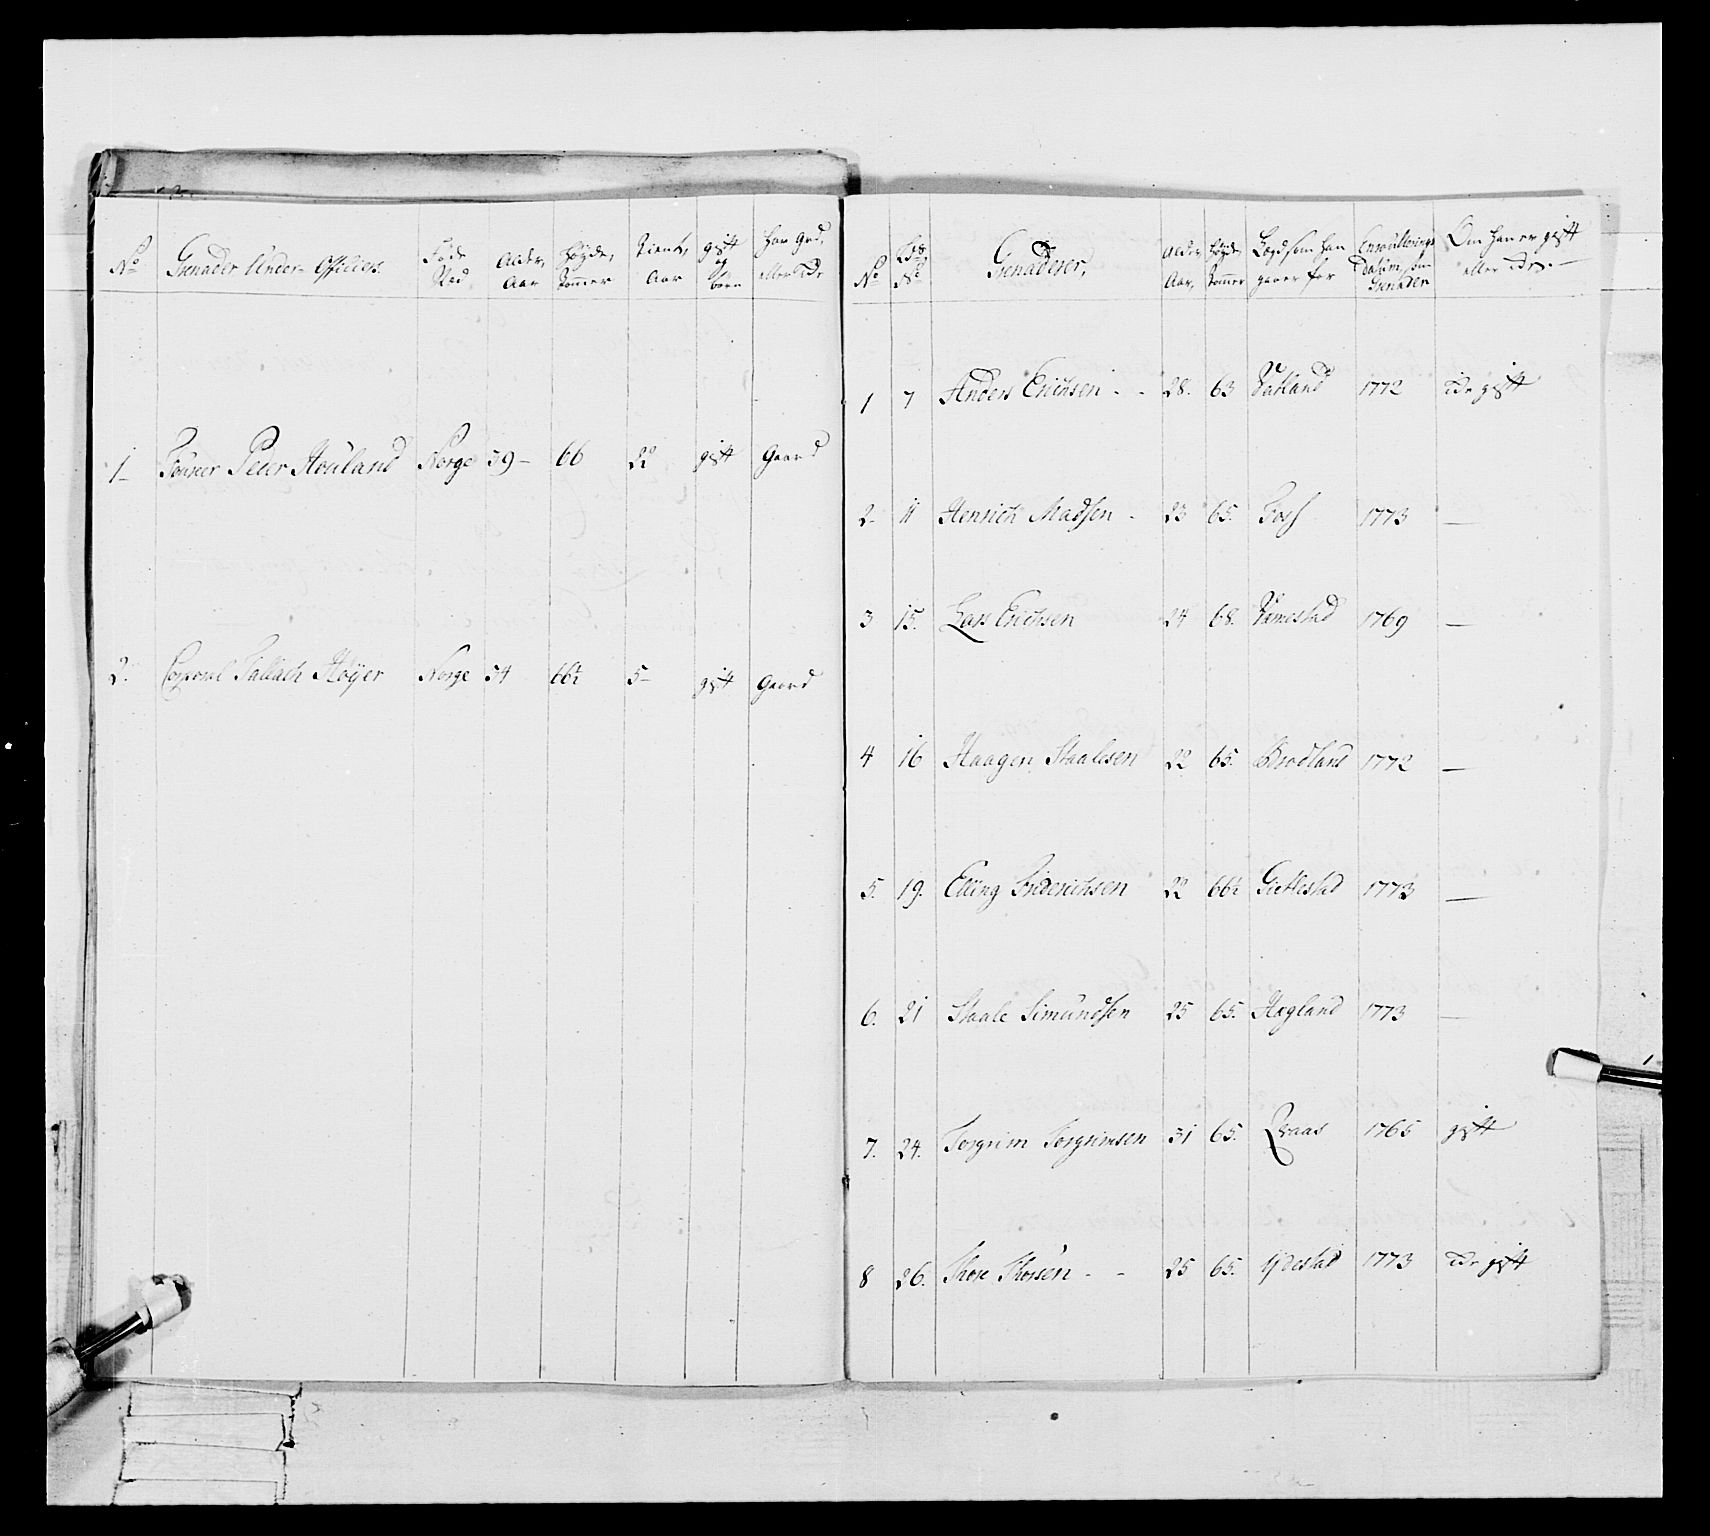 No Grenadeer Under-Officiers. Føde Stæd Alder, Aar Høyde, Tommer Tieniste, Aar gift og børn har Grd, eller Ide
1 Fourer Peter Houland Norge 39 66 22 gift Gaard
2. Corporal Tallach Høÿer Norge 34 66½ 5 gift Gaard
No Læg No Grenaderer, Alder, Aar, Høyde, Tommer Lægd som han gaaer for Enroullerings Datum som Grenader Om han er gift eller Ide.
1 7 Anders Erichsen 28. 63 Vatland 1772 Ide gift
2. 11 Henrich Madsen 23 65. Foss 1773 —
3 15. Lars Erichsen 24 68. Vamestad 1769 —
4 16 Haagen Staalesen 22 65. Brodland 1772 —
5. 19. Elling Friderichsen 22 66½ Gietlestad 1773 —
6. 21 Staale Simundsen 25 65. Hægland 1773 —
7. 24. Torgrim Torgrimsen 31 65. Qvaas 1765 gift
8 26. Thore Thorsen 25 65. Ydestad 1773 Ide gift